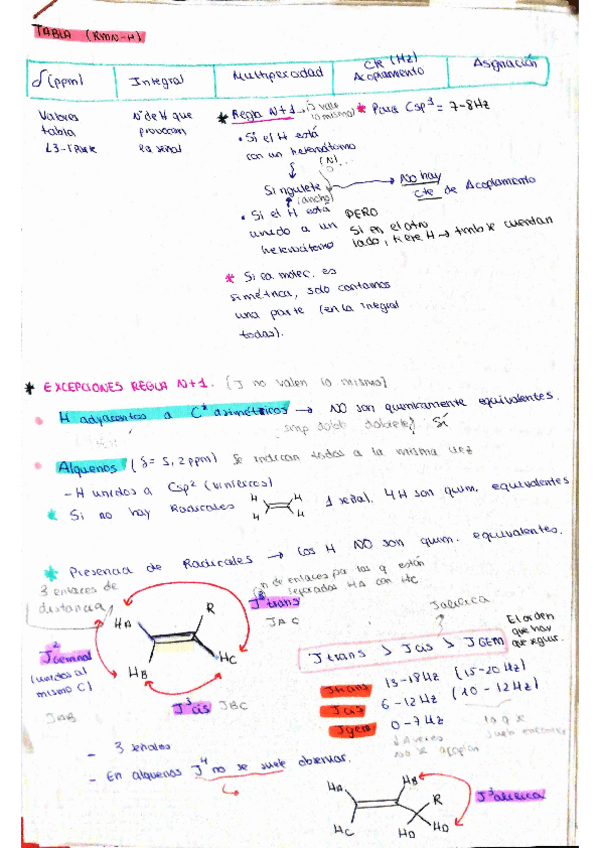 TABLA (RMN-H)
δ(ppm) Integral Multiplicidad CR (Hz) Acoplamiento Asignación
Valores tabla
Nº de H que provocan la señal
* Regla N+1. (J vale lo mismo)
* Para Csp³ = 7-8Hz
• Si el H está
con un heteroátomo
(N)...
Singulete
(ancho)
No hay
cte de Acoplamiento
• Si el H está
unido a un
heteroátomo
PERO
Si en el otro
lado, tiene H → tmb se cuentan
* Si la molec. es
simétrica, solo contamos
una parte (en la integral
todas).
* EXCEPCIONES REGLA N+1. (J no valen lo mismo)
• H adyacentes a C* asimétricos → NO son químicamente equivalentes.
doble doblete Sí
• Alquenos (δ = 5,2 ppm) Se indican todos a la misma vez
- H unidos a Csp² (vinílicos)
* Si no hay Radicales H H H H 1 señal. 4H son quim. equivalentes
* Presencia de Radicales → los H NO son quim. equivalentes.
3 enlaces de
distancia
n de enlaces por los q están
separados HA con HC
J³ trans
JAC
HA R
HB HC
J² geminal
(unidos al
mismo C)
JAB
J³ cis JBC
Jalílica
El orden
que hay
que seguir.
Jtrans > Jcis > JGEM
Jtrans 13-18Hz (15-20Hz)
Jcis 6-12Hz (10-12Hz)
Jgem 0-7Hz
A veces
no se acoplan
lo q se
suele encontrar
- 3 señales
- En alquenos J⁴ no se suele observar.
HA HB
R
HC HD HD
J³ alílica